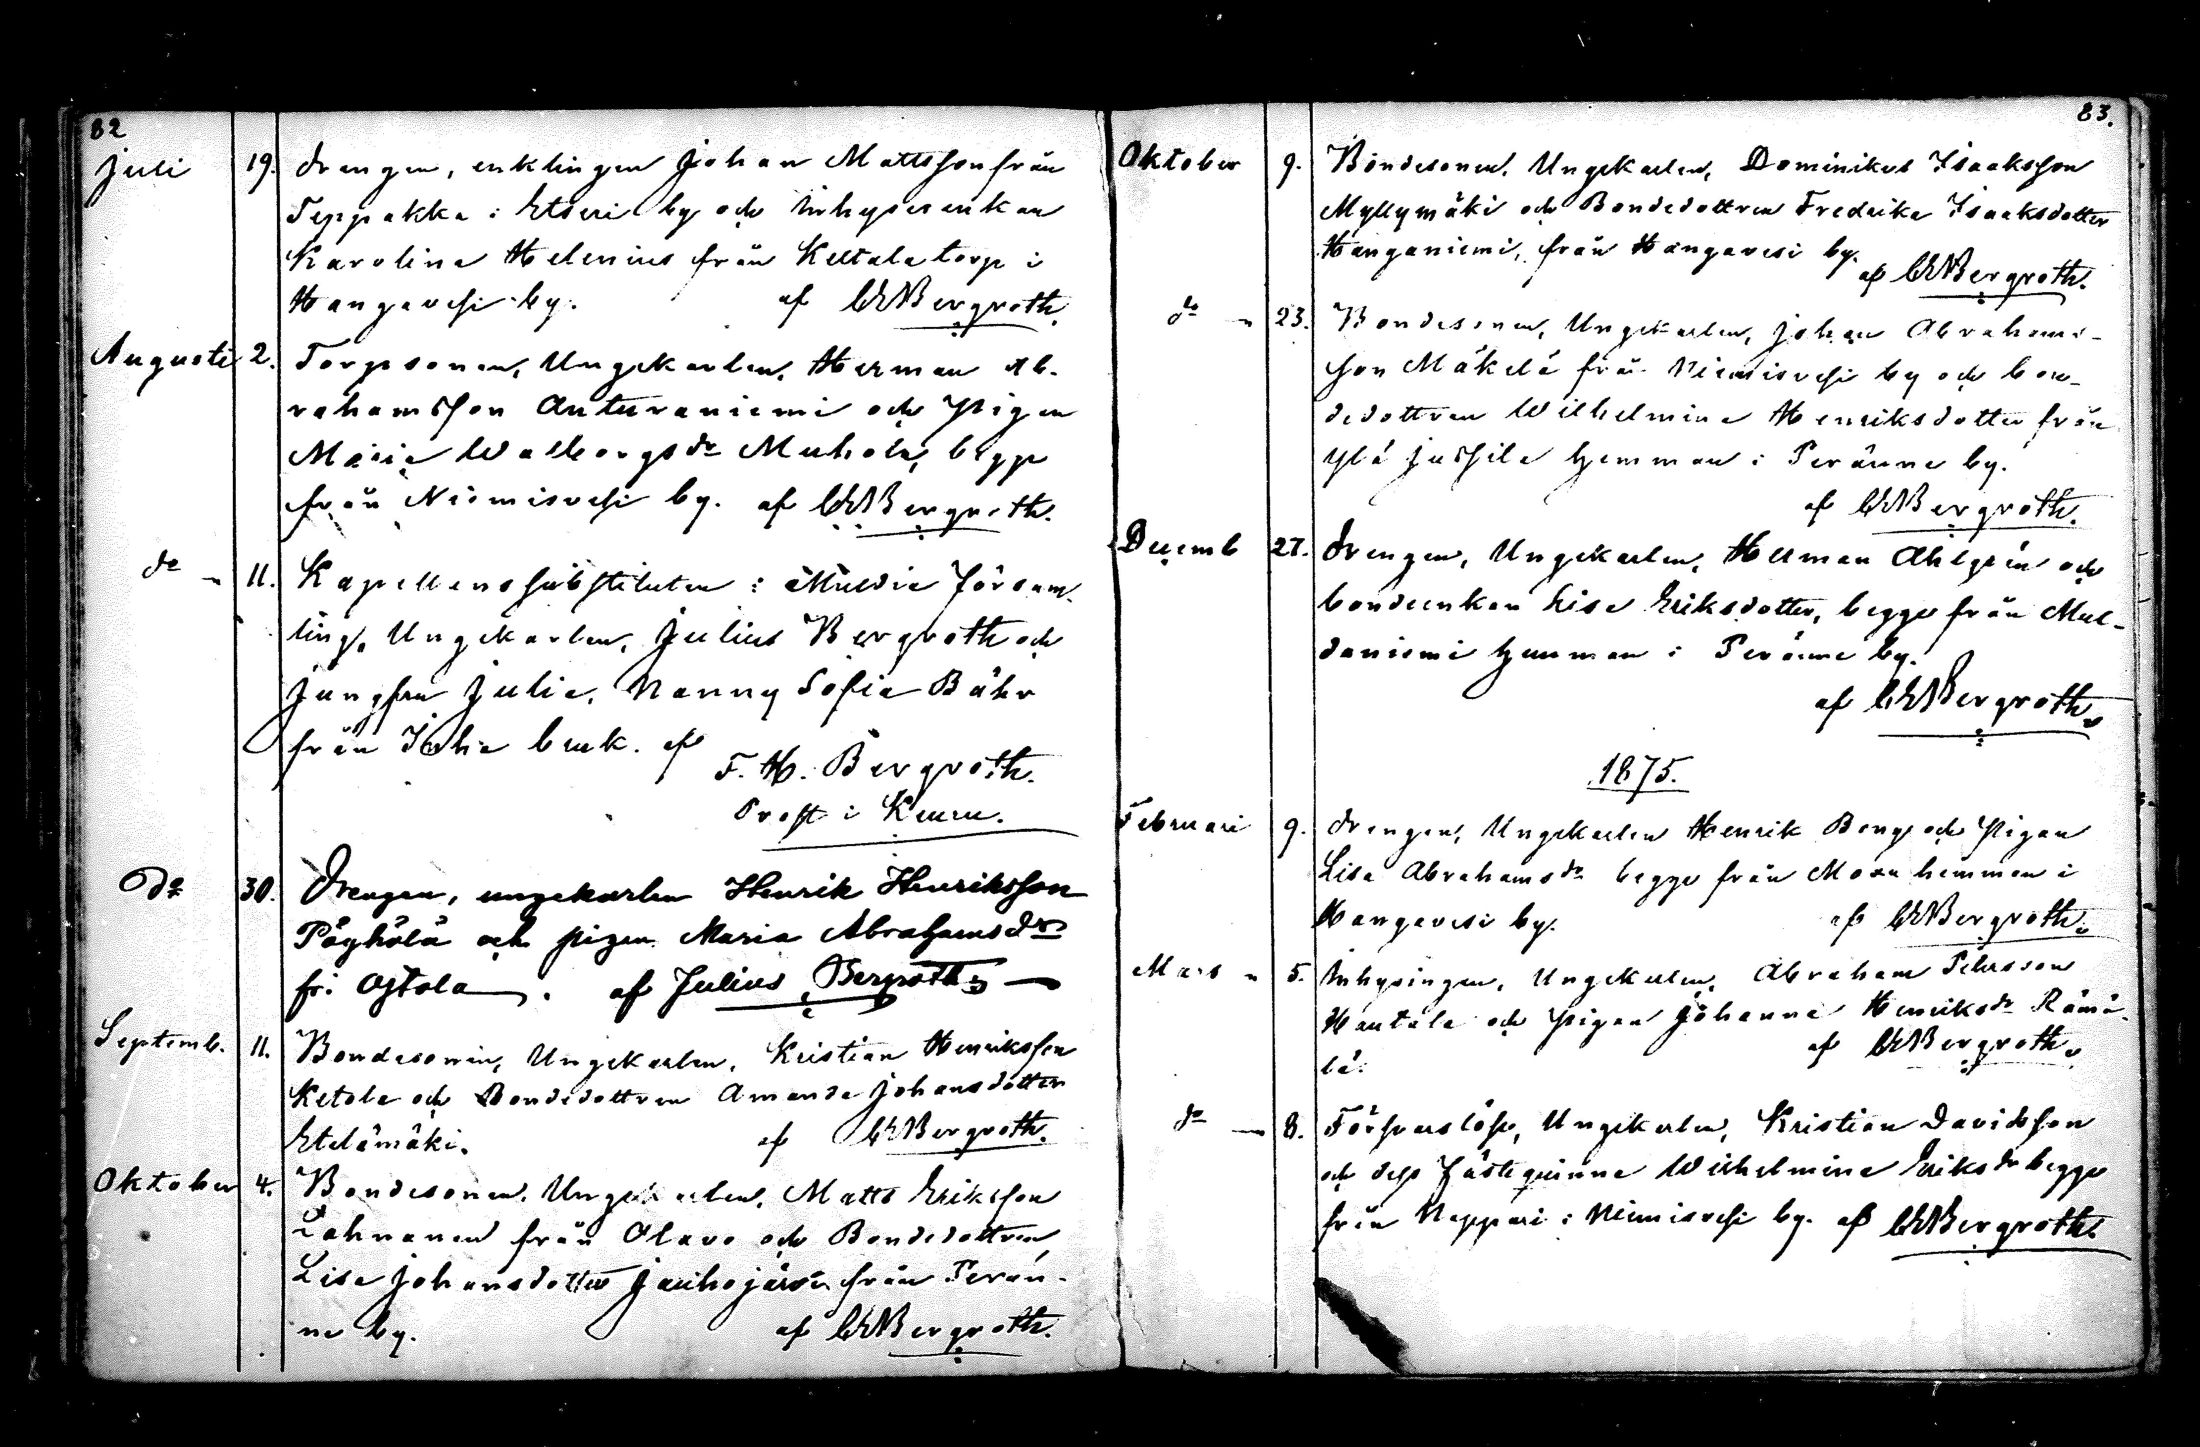 82
Juli 19. Drengen, enklingen Johan Mattsson från
Teppakka i Etseri by och Inhysesenkan
Karolina Helenius från Keltala torp i
Hangavesi by. af CENBergroth.
Augusti 2. Torpsonen, Ungekarlen, Herman Ab-
rahamsson Anturaniemi och pigan
Maria Walborgsdr Muhola, begge
från Niemisvesi by. af CENBergroth.
do 11. Kapellanssubstituten i Multia försam-
ling, Ungekarlen, Julius Bergroth och
Jungfru Julia, Nanny Sofia Bähr
från Inha bruk. af
F. H. Bergroth.
Prost i Keuru.
Do 30. Drengen, ungekarlen Henrik Henriksson
Pöyhölä och pigan Maria Abrahamsdr
fr: Ostola. af Julius Bergroth
Septemb. 11. Bondesonen, Ungekarlen, Kristian Henriksson
Ketola och Bondedottren Amanda Johansdotter
Etelämäki. af CENBergroth.
Oktober 4. Bondesonen, Ungekarlen, Matts Eriksson
Lahnanen från Alavo och Bondedottren
Lisa Johansdotter Jauhojärvi från Perän-
ne by. af CENBergroth.
83.
Oktober 9. Bondesonen, Ungekarlen, Dominikus Isaaksson
Myllymäki och Bondedottren Fredrika Isaaksdotter
Hanganiemi, från Hangavesi by.
af CENBergroth.
do 23. Bondesonen, Ungekarlen, Johan Abrahams-
son Mäkelä från Niemisvesi by och bon-
dedottren Wilhelmina Henriksdotter från
Ylä Jussila hemman i Peränne by.
af CENBergroth.
Decemb 27. Drengen, Ungekarlen, Herman Ahlgrén och
bondeenkan Lisa Eriksdotter, begge från Mul-
daniemi hemman i Peränne by.
af CENBergroth.
1875.
Februari 9. Drengen, Ungekarlen Henrik Bong och Pigan
Lisa Abrahamsdr begge från Moxu hemman i
Hangavesi by. af CENBergroth.
Mars 5. Inhysingen, Ungekarlen, Abraham Petersson
Hautala och pigan Johanna Henriksdr Rämä-
lä. af CENBergroth.
do 8. Försvarslöse, Ungekarlen, Kristian Davidsson
och dess Fästeqvinna Wilhelmina Eriksdr begge
från Neppari i Niemisvesi by. af CENBergroth.